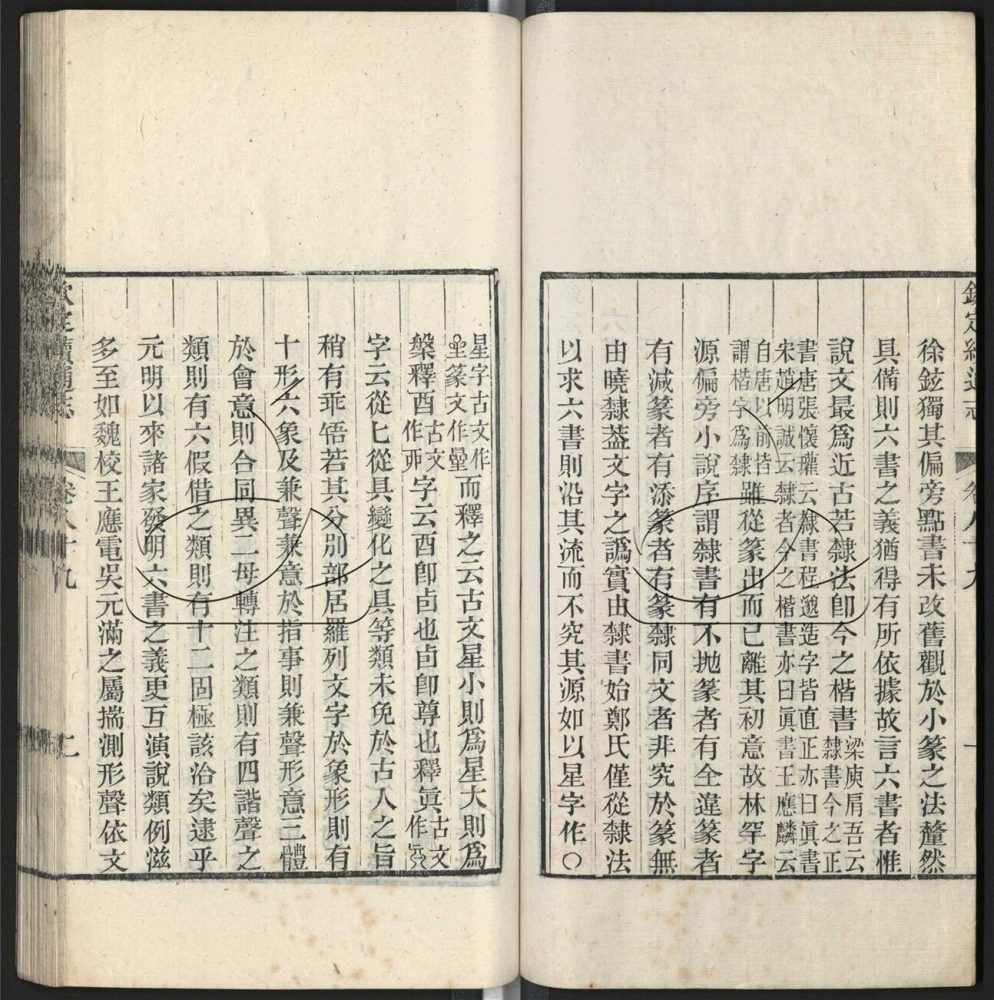 欽定續通志 卷八十九
徐鉉獨其偏旁點書未改舊觀於小篆之法釐然
具備則六書之義猶得有所依據故言六書者惟
說文最爲近古若隸法卽今之楷書梁庾肩吾云隸書今之正
書唐張懷瓘云隸書程邈造字皆直正亦曰眞書
宋趙明誠云隸者今之楷書亦曰眞書王應麟云
自唐以前皆謂楷字爲隸雖從篆出而已離其初意故林罕字
源偏旁小說序謂隸書有不拋篆者有全違篆者
有減篆者有添篆者有篆隸同文者非究於篆無
由曉隸葢文字之譌實由隸書始鄭氏僅從隸法
以求六書則沿其流而不究其源如以星字作〇
星字古文作𠻖篆文作曐而釋之云古文星小則爲星大則爲
槃釋酉古文作丣字云酉卽卣也卣卽尊也釋眞古文作𠑹
字云從匕從具變化之具等類未免於古人之旨
稍有乖牾若其分別部居羅列文字於象形則有
十形六象及兼聲兼意於指事則兼聲形意三體
於會意則合同異二母轉注之類則有四諧聲之
類則有六假借之類則有十二固極該洽矣逮乎
元明以來諸家發明六書之義更互演說類例滋
多至如魏校王應電吳元滿之屬揣測形聲依文
欽定續通志 卷八十九